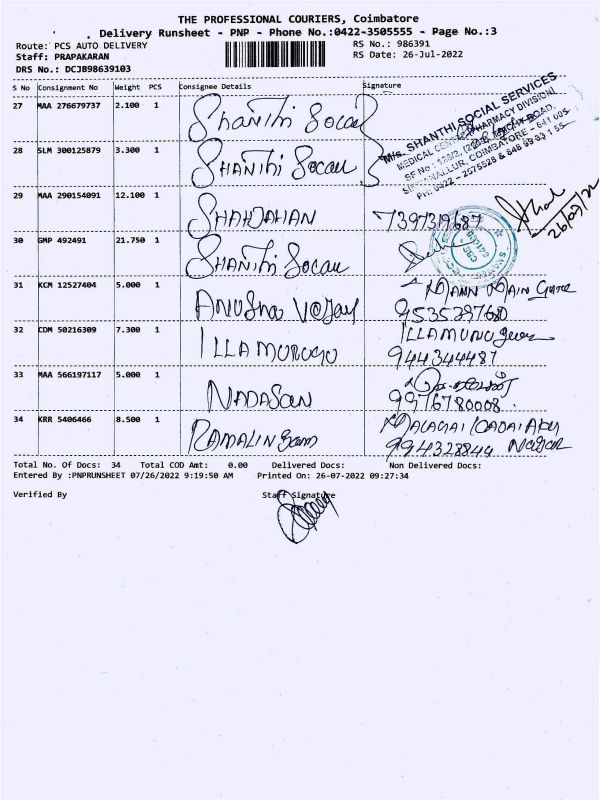 THE PROFESSIONAL COURIERS, Coimbatore
Delivery Runsheet - PNP - Phone No.:0422-3505555 - Page No.:3
Route: PCS AUTO DELIVERY
RS No.: 986391
Staff: PRAPAKARAN
RS Date: 26-Jul-2022
DRS No.: DCJB98639103
S No Consignment No Weight PCS Consignee Details Signature
27 MAA 276679737 2.100 1 Shanthi Socau
M/s. SHANTHI SOCIAL SERVICES
MEDICAL CENTRE (PHARMACY DIVISION)
28 SLM 300125879 3.300 1 SHANthi Socau
SINGANALLUR, COIMBATORE - 641 005.
29 MAA 290154091 12.100 1 SHAHJAHAN 7397319687
26/07/22
30 GMP 492491 21.750 1 SHANthi Socau
31 KCM 12527404 5.000 1 ANUSHA VIJAY MAIN Gate
32 CDM 50216309 7.300 1 ILLAMURUGU
944344487
33 MAA 566197117 5.000 1 NADASAN
9976780008.
34 KRR 5406466 8.500 1 RAMALINGam
994328844 Nagar
Total No. Of Docs: 34 Total COD Amt: 0.00 Delivered Docs: Non Delivered Docs:
Entered By :PNPRUNSHEET 07/26/2022 9:19:50 AM Printed On: 26-07-2022 09:27:34
Verified By Staff Signature